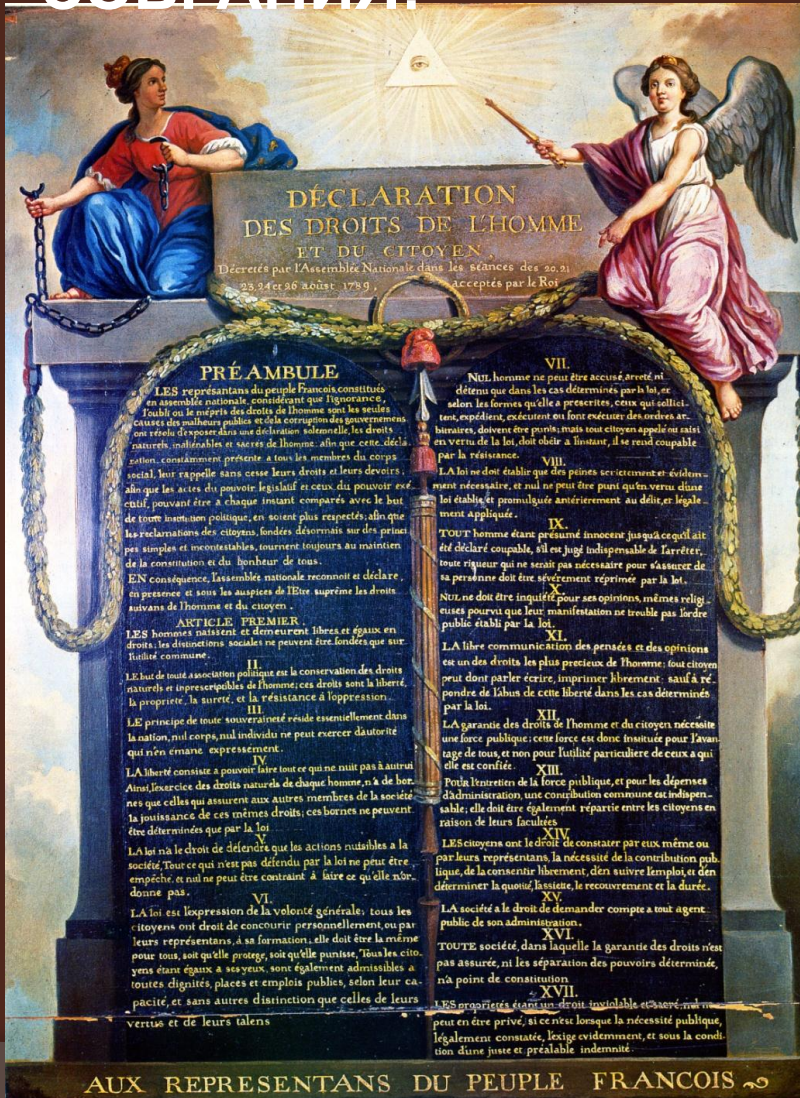 СОБРАНИЯ.
DÉCLARATION
DES DROITS DE L'HOMME
ET DU CITOYEN,
Décretés par l'Assemblée Nationale dans les séances des 20, 21
23, 24 et 26 aoûst 1789, acceptés par le Roi
PRÉAMBULE
LES représantans du peuple Francois, constitués
en assemblée nationale, considérant que l'ignorance,
l'oubli ou le mépris des droits de l'homme sont les seules
causes des malheurs publics et de la corruption des gouvernemens
ont résolu d'exposer dans une déclaration solemnelle, les droits
naturels, inaliénables et sacrés de l'homme; afin que cette décla
ration, constamment présente a tous les membres du corps
social, leur rappelle sans cesse leurs droits et leurs devoirs,
afin que les actes du pouvoir legislatif et ceux du pouvoir exé-
cutif, pouvant être a chaque instant comparés avec le but
de toute institution politique, en soient plus respectés; afin que
les reclamations des citoyens, fondées désormais sur des princi
pes simples et incontestables, tournent toujours au maintien
de la constitution et du bonheur de tous.
EN conséquence, l'assemblée nationale reconnoit et déclare,
en presence et sous les auspices de l'Etre suprême les droits
suivans de l'homme et du citoyen.
ARTICLE PREMIER.
LES hommes naissent et demeurent libres et égaux en
droits. les distinctions sociales ne peuvent être fondées que sur
l'utilité commune.
II.
LE but de toute association politique est la conservation des droits
naturels et inprescriptibles de l'homme; ces droits sont la liberté,
la propriete, la sureté, et la résistance à l'oppression.
III.
LE principe de toute souveraineté réside essentiellement dans
la nation, nul corps, nul individu ne peut exercer d'autorité
qui n'en émane expressement.
IV.
LA liberté consiste a pouvoir faire tout ce qui ne nuit pas à autrui
Ainsi, l'exercice des droits naturels de chaque homme, n'a de bor-
nes que celles qui assurent aux autres membres de la société
la jouissance de ces mêmes droits; ces bornes ne peuvent
être déterminées que par la loi
V.
LA loi n'a le droit de défendre que les actions nuisibles a la
société. Tout ce qui n'est pas défendu par la loi ne peut être
empêché, et nul ne peut être contraint à faire ce qu'elle n'or-
donne pas.
VI.
LA loi est l'expression de la volonté générale; tous les
citoyens ont droit de concourir personnellement, ou par
leurs représentans, à sa formation; elle doit être la même
pour tous, soit qu'elle protege, soit qu'elle punisse, Tous les cito-
yens étant égaux a ses yeux, sont également admissibles a
toutes dignités, places et emplois publics, selon leur ca-
pacité, et sans autres distinction que celles de leurs
vertus et de leurs talens
VII.
NUL homme ne peut être accusé, arreté ni
détenu que dans les cas déterminés par la loi, et
selon les formes qu'elle a prescrites, ceux qui sollici-
tent, expédient, exécutent ou font exécuter des ordres ar-
bitraires, doivent être punis; mais tout citoyen appelé ou saisi
en vertu de la loi, doit obéir a l'instant, il se rend coupable
par la résistance.
VIII.
LA loi ne doit établir que des peines strictement et évidem-
ment nécessaire, et nul ne peut être puni qu'en vertu d'une
loi établie, et promulguée antérierement au délit, et légale-
ment appliquée.
IX.
TOUT homme étant présumé innocent jusqu'a ce qu'il ait
été déclaré coupable, s'il est jugé indispensable de l'arrêter,
toute rigueur qui ne serait pas nécessaire pour s'assurer de
sa personne doit être sévèrement réprimée par la loi.
X.
NUL ne doit être inquiété pour ses opinions, mêmes religi-
euses pourvu que leur manifestation ne trouble pas l'ordre
public établi par la loi.
XI.
LA libre communication des pensées et des opinions
est un des droits les plus precieux de l'homme; tout citoyen
peut dont parler écrire, imprimer librement: sauf à ré-
pondre de l'abus de cette liberté dans les cas déterminés
par la loi.
XII.
LA garantie des droits de l'homme et du citoyen nécessite
une force publique; cette force est donc instituée pour l'avan-
tage de tous, et non pour l'utilité particuliere de ceux a qui
elle est confiée.
XIII.
POUR l'entretien de la force publique, et pour les dépenses
d'administration, une contribution commune est indispen-
sable; elle doit être également répartie entre les citoyens en
raison de leurs facultées
XIV.
LES citoyens ont le droit de constater par eux même ou
par leurs représentans, la nécessité de la contribution pub-
lique, de la consentir librement, d'en suivre l'emploi, et d'en
déterminer la quotité, l'assiette, le recouvrement et la durée.
XV.
LA société a le droit de demander compte a tout agent
public de son administration.
XVI.
TOUTE société, dans laquelle la garantie des droits n'est
pas assurée, ni les séparation des pouvoirs déterminée,
n'a point de constitution
XVII.
LES proprietés étant un droit inviolable et sacré, nul ne
peut en être privé, si ce n'est lorsque la nécessité publique,
légalement constatée, l'exige evidemment, et sous la condi-
tion d'une juste et préalable indemnité.
AUX REPRESENTANS DU PEUPLE FRANCOIS